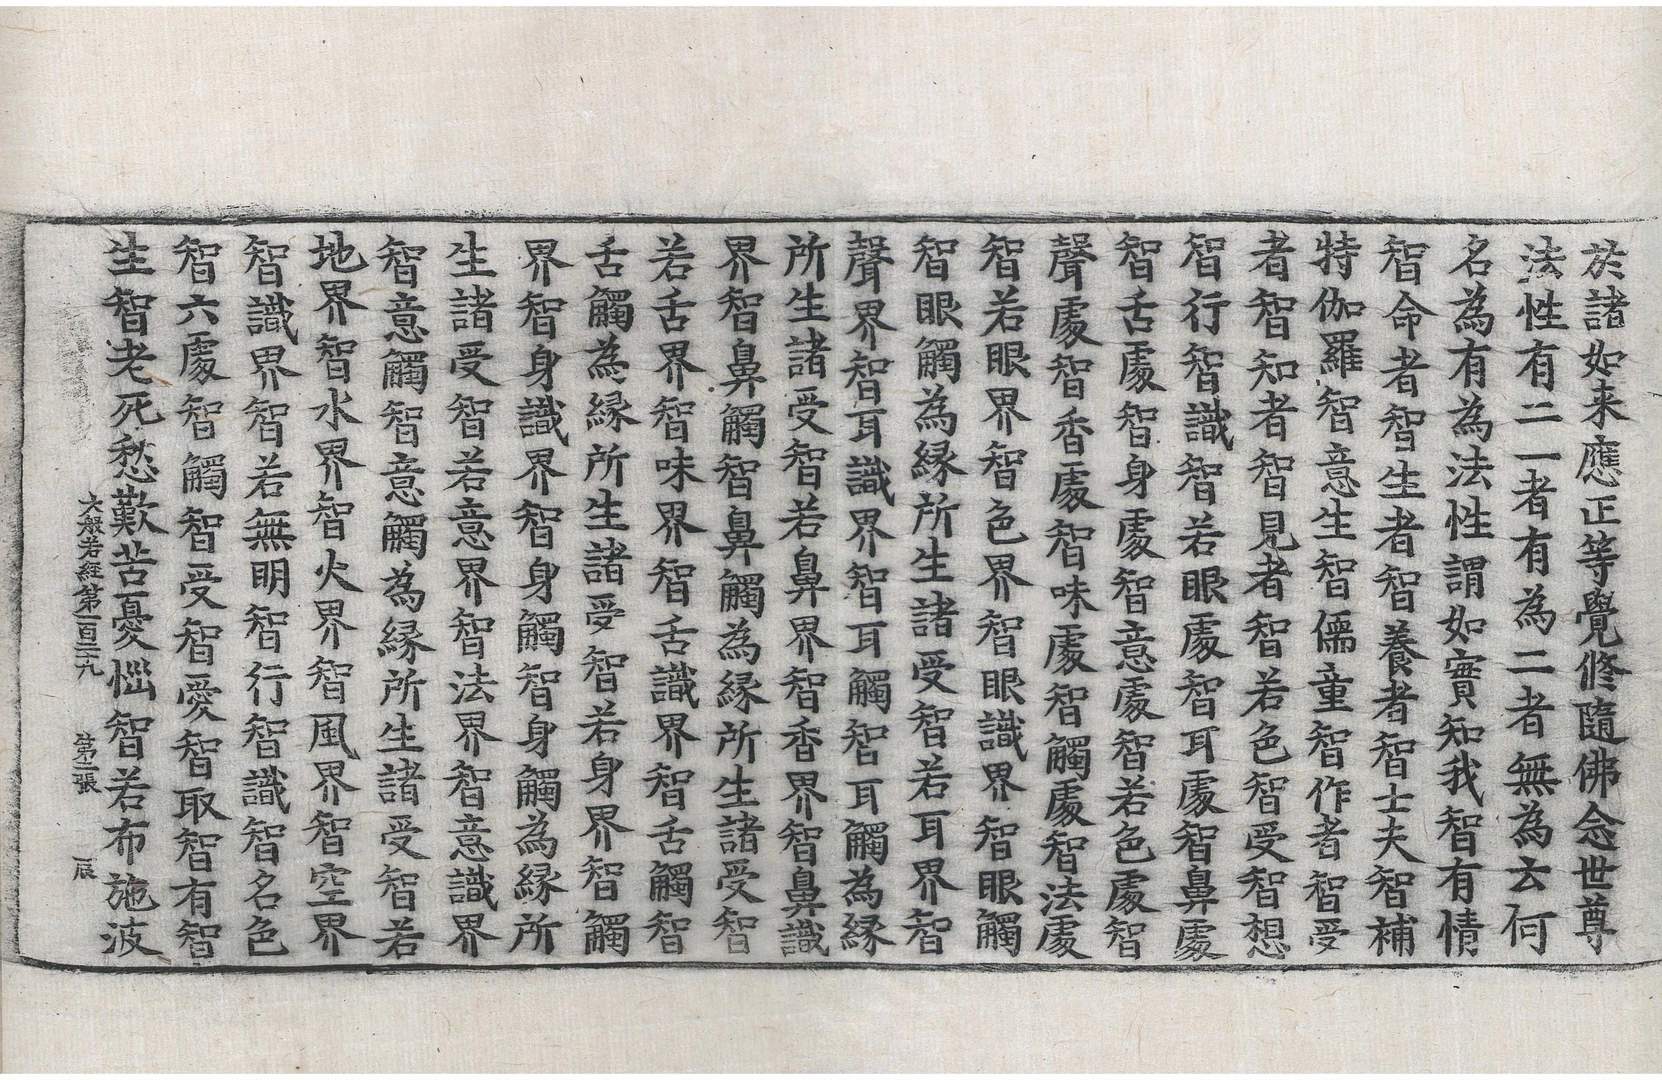 於諸如来應正等覺修隨佛念世尊
法性有二一者有為二者無為云何
名為有為法性謂如實知我智有情
智命者智生者智養者智士夫智補
特伽羅智意生智儒童智作者智受
者智知者智見者智若色智受智想
智行智識智若眼處智耳處智鼻處
智舌處智身處智意處智若色處智
聲處智香處智味處智觸處智法處
智若眼界智色界智眼識界智眼觸
智眼觸為緣所生諸受智若耳界智
聲界智耳識界智耳觸智耳觸為緣
所生諸受智若鼻界智香界智鼻識
界智鼻觸智鼻觸為緣所生諸受智
若舌界智味界智舌識界智舌觸智
舌觸為緣所生諸受智若身界智觸
界智身識界智身觸智身觸為緣所
生諸受智若意界智法界智意識界
智意觸智意觸為緣所生諸受智若
地界智水界智火界智風界智空界
智識界智若無明智行智識智名色
智六處智觸智受智愛智取智有智
生智老死愁歎苦憂惱智若布施波
大般若經第一百二十九 第二張 辰